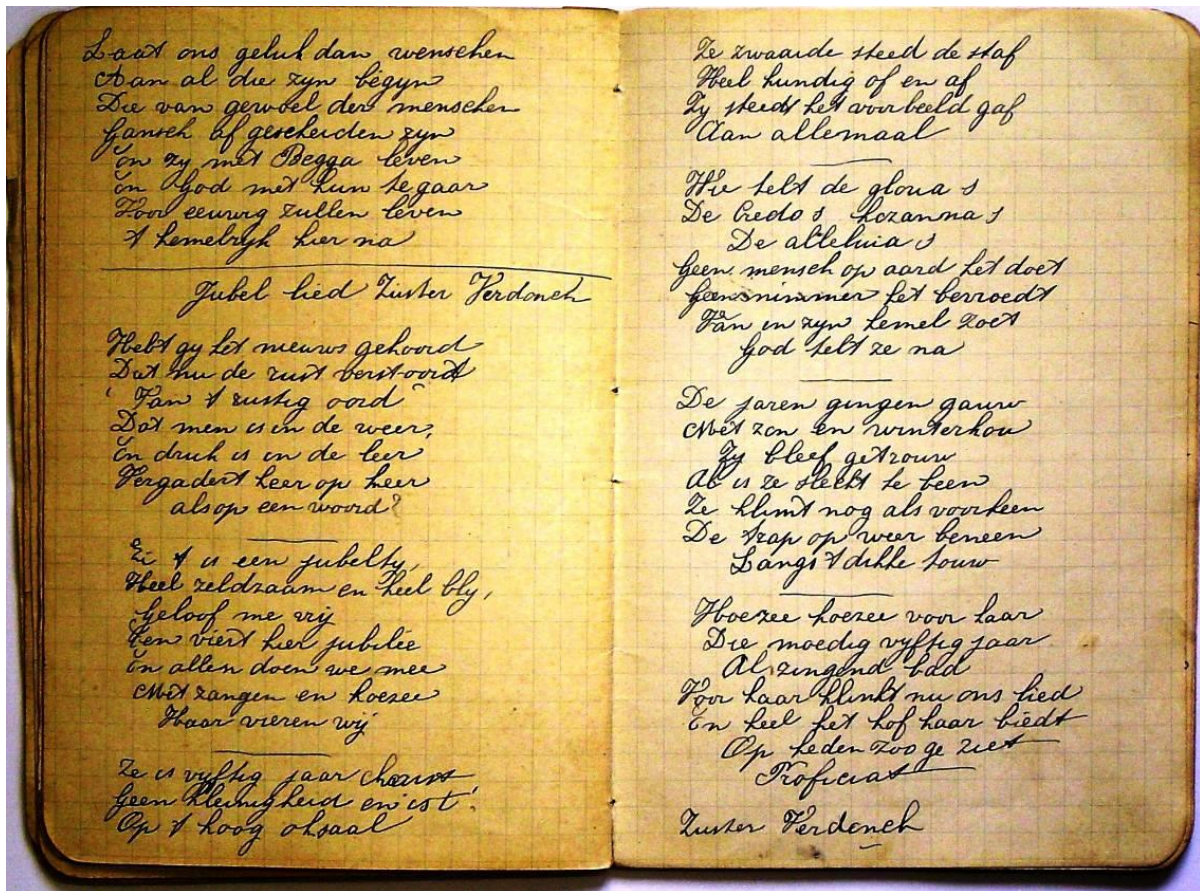 Laat ons geluk dan wenschen
Aan al die zyn begyn
Die van gewoel der menschen
Gansch af gescheiden zyn
En zy met Begga leven
En God met hun te gaar
Voor eeuwig zullen leven
't hemelryk hier na
Jubel lied Zuster Verdonck
Hebt gy het nieuws gehoord
Dat nu de rust verstoordt
Van 't rustig oord
Dat men is in de weer,
En druk is in de leer
Vergadert heer op heer
als op een woord?
Ei 't is een jubelty,
Heel zeldzaam en heel bly,
Geloof me vrij
Een viert hier jubilée
En allen doen we mee
Met zangen en hoezee
Haar vieren wij
Ze is vyftig jaar
Geen kleinigheid en ist!
Op 't hoog oksaal
Ze zwaaide steed de staf
Heel kundig of en af
Zy steedt het voorbeeld gaf
Aan allemaal
Wie telt de gloria s
De Credo s hozanna s
De alleluia s
Geen mensch op aard het doet
Geen nimmer het bevroedt
Van in zyn hemel zoet
God telt ze na
De jaren gingen gauw
Met zon en winterkou
Zy bleef getrouw
Al is ze slecht te been
Ze klimt nog als voorheen
De trap op weer beneen
Langs 't dikke touw
Hoezee hoezee voor haar
Die moedig vyftig jaar
Al zingend bad
Voor haar klinkt nu ons lied
En heel het hof haar biedt
Op heden zoo ge ziet
Proficiat
Zuster Verdonck